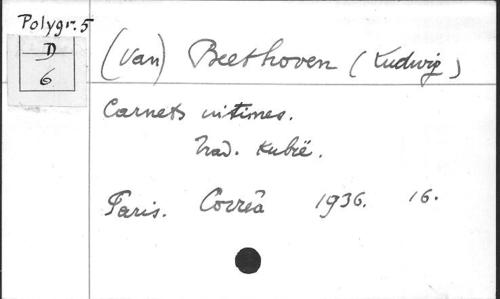 Polygr. 5
D
6
(Van) Beethoven (Ludwig)
Carnets intimes.
Trad. Kubië.
Paris. Corrêa 1936. 16.